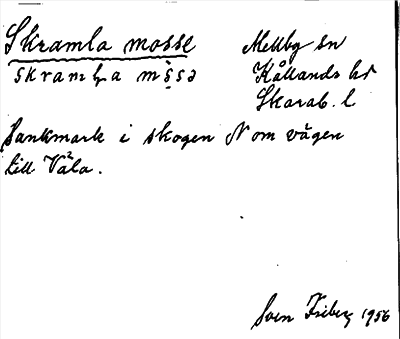 Skramla mosse
Mellby sn
skramla måsa
Kållands hd
Skarab. l
Sankmark i skogen N om vägen
till Våla.
Sven Friberg 1956